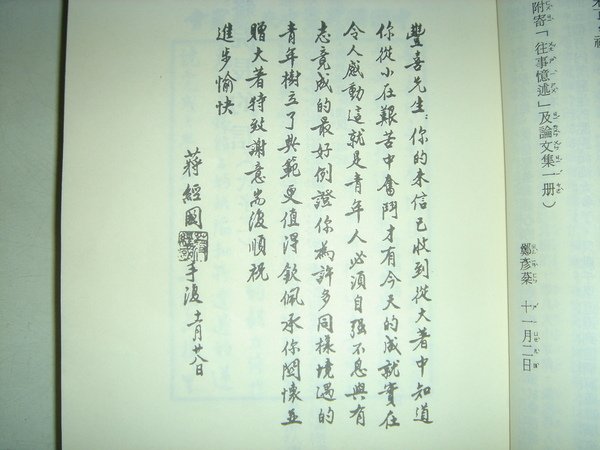 附寄「往事憶述」及論文集一册）
鄭彥棻 十一月二日
豐喜先生：你的来信已收到從大著中知道
你從小在艱苦中奮鬥才有今天的成就實在
令人感動這就是青年人必須自强不息與有
志竟成的最好例證你為許多同樣境遇的
青年樹立了典範更值得欽佩承你関懷並
贈大著特致謝意耑復順祝
進步愉快
蔣經國 手復 十一月廿八日